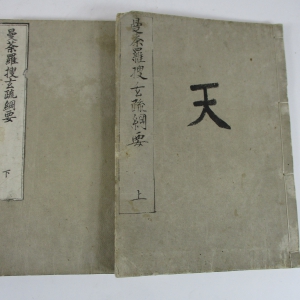 曼荼羅捜玄疏綱要
上
天
曼荼羅捜玄疏綱要
下